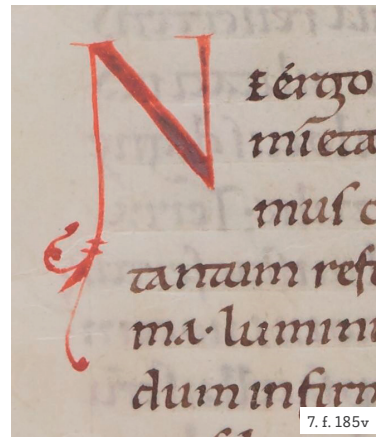 N
Eérgo
mīeta
mus c
tantum refe
ma·lumini
dum infirm
7. f. 185v